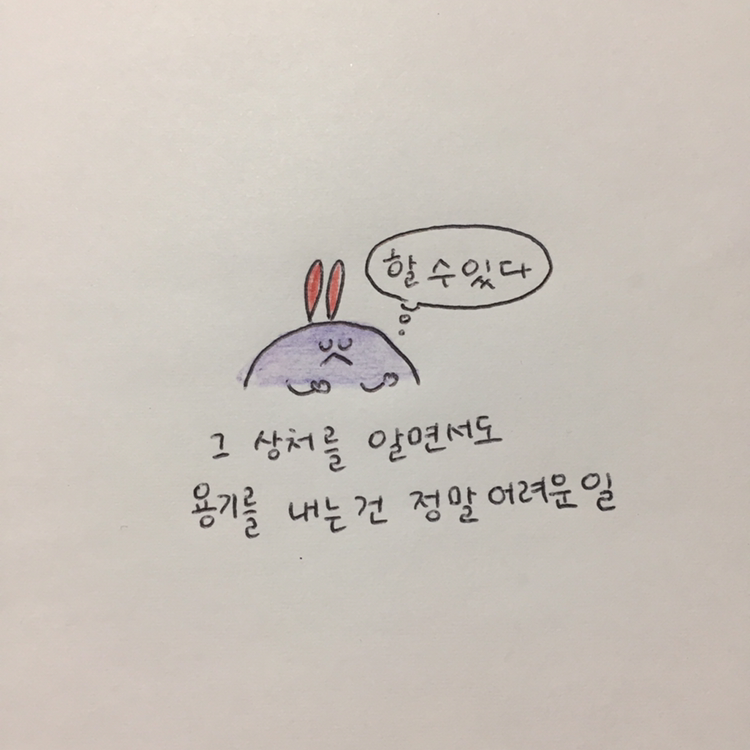 할 수 있다
그 상처를 알면서도
용기를 내는 건 정말 어려운 일